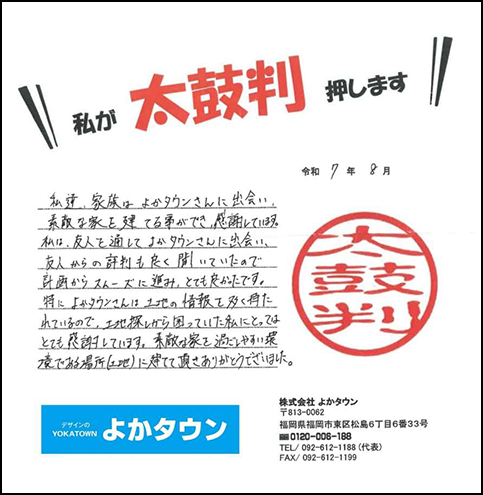 私が 太鼓判 押します
令和 7 年 8 月
私達、家族は よかタウンさんに出会い、
素敵な家を建てる事ができ、感謝しています。
私は、友人を通して よかタウンさんに出会い、
友人からの評判も良く聞いていたので
計画から スムーズに進み、とても良かったです。
特に よかタウンさんは 土地の情報を多く持た
れているので、土地探しから困っていた私にとっては
とても感謝しています。素敵な家を 過ごしやすい環
境である場所(土地)に建てて頂きありがとうございました。
太鼓判
デザインの
YOKATOWN よかタウン
株式会社 よかタウン
〒813-0062
福岡県福岡市東区松島6丁目6番33号
0120-006-188
TEL/ 092-612-1188 (代表)
FAX/ 092-612-1199